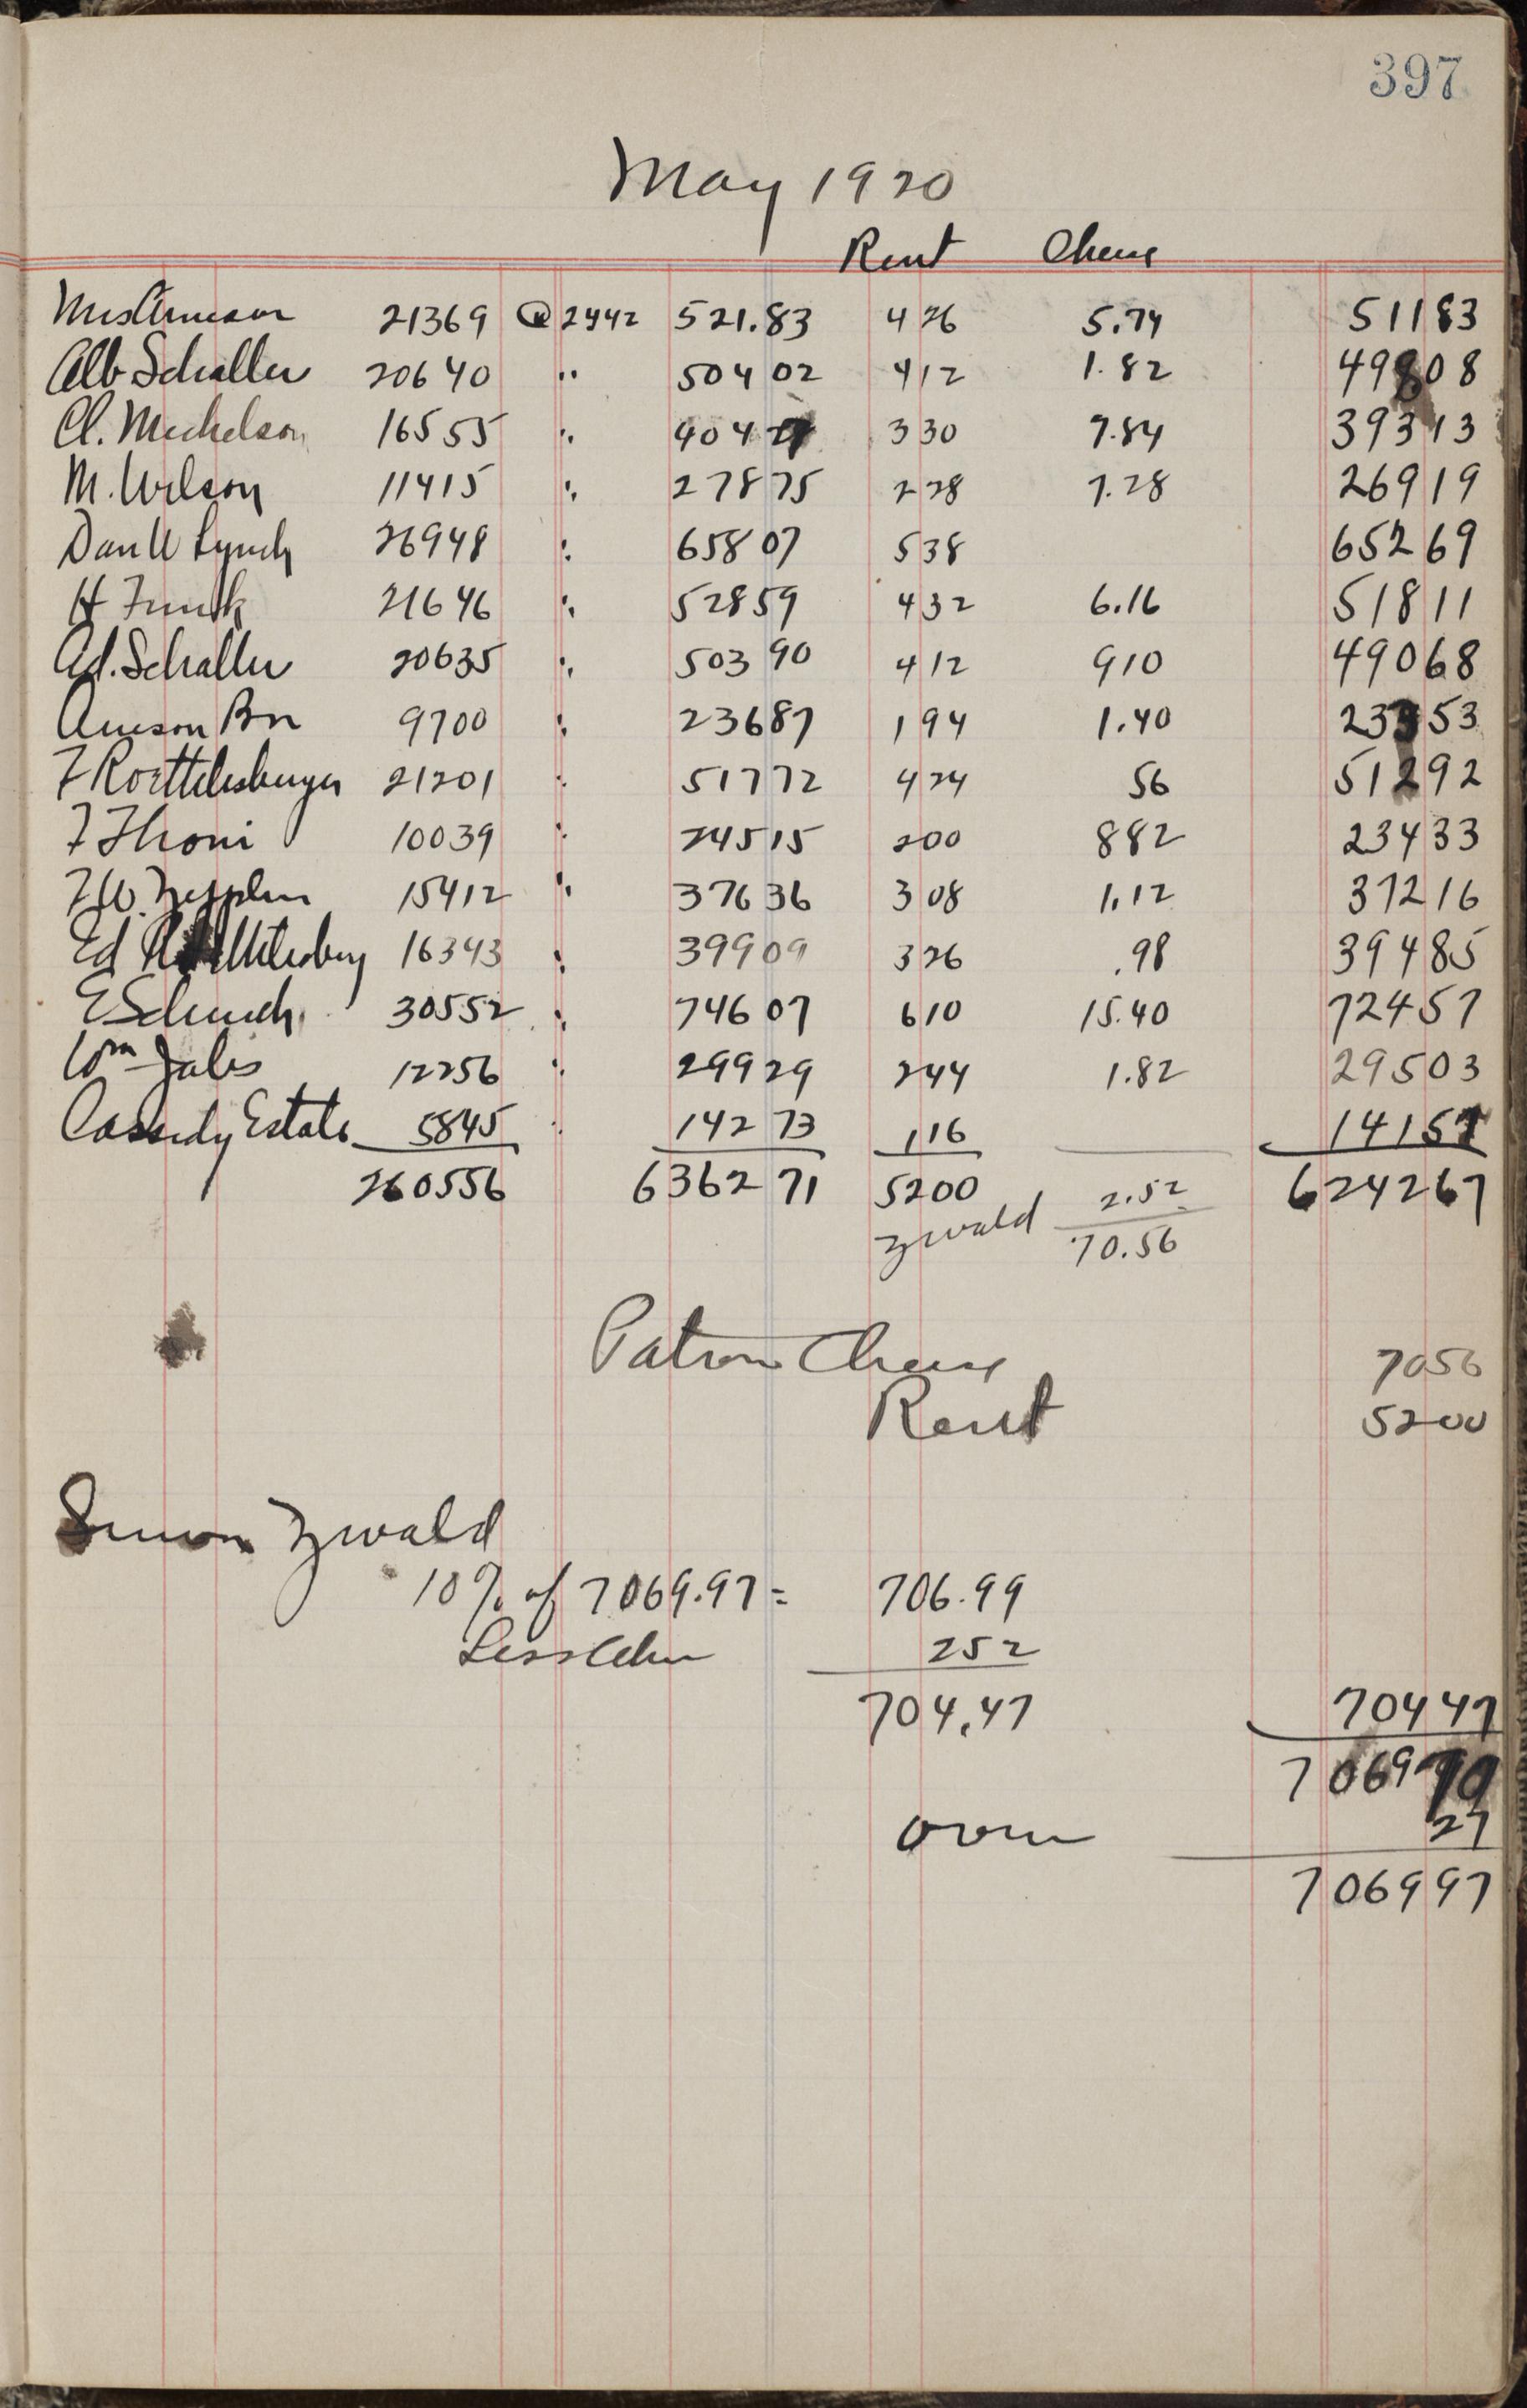 397
May 1920
Rent Cheese
Mrs Arneson 21369 @ 2442 521.83 426 5.74 51183
Alb Schaller 20640 " 504 02 412 1.82 49808
Cl. Mickelson 16555 " 404 27 330 7.84 39313
M. Wilson 11415 " 278 75 228 7.28 26919
Dan W Lynch 26948 " 658 07 538 65269
H Funk 21646 " 528 59 432 6.16 51811
Ad. Schaller 20635 " 503 90 412 910 49068
Arneson Bro 9700 " 236 87 194 1.40 23353
F Roettelsberger 21201 " 517 72 424 56 51292
F Thoni 10039 " 245 15 200 882 23433
F W. 15412 " 376 36 308 1.12 37216
Ed 16343 " 399 09 326 .98 39485
E Schuch 30552 " 746 07 610 15.40 72457
Wm 12256 " 299 29 244 1.82 29503
Cassidy Estate 5845 " 142 73 116 14157
260556 6362 71 5200 624267
Zwald 2.52
70.56
Patrons Cheese 7056
Rent 5200
Simon Zwald
10% of 7069.97 = 706.99
Less Chee 252
704.47 70447
7069 70
over 27
706997